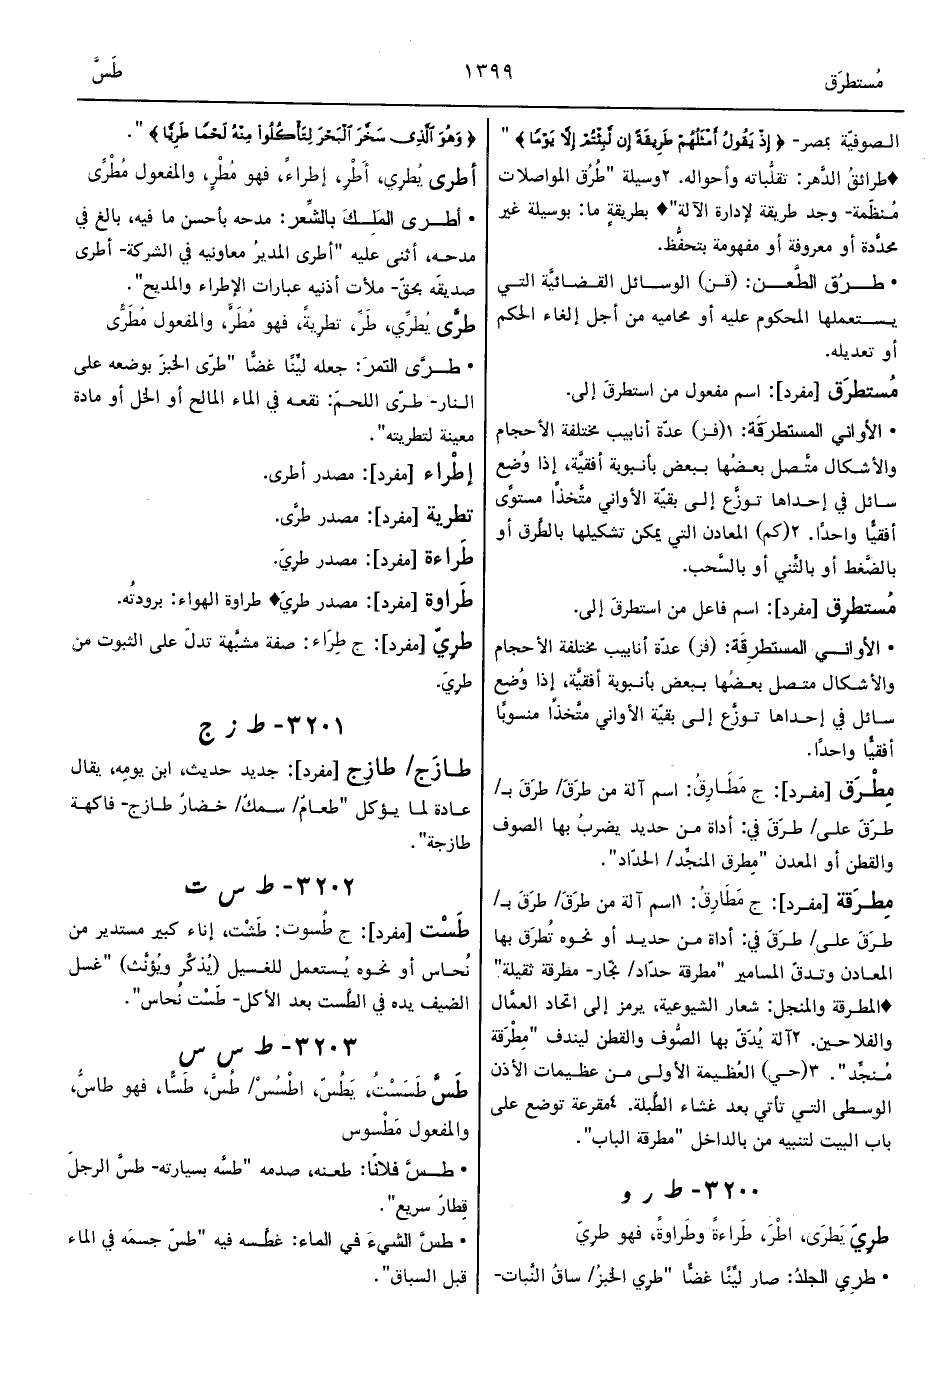 مُستطرَق
١٣٩٩
طَسَّ
الصوفيّة بمصر- ﴿ إِذْ يَقُولُ أَمْثَلُهُمْ طَرِيقَةً إِن لَّبِثْتُمْ إِلَّا يَوْمًا ﴾ "
♦طرائقُ الدَّهر: تقلّباته وأحواله. ٢وسيلة "طُرُق المواصلات
مُنظّمة- وجد طريقة لإدارة الآلة"♦ بطريقةٍ ما: بوسيلة غير
محدَّدة أو معروفة أو مفهومة بتحفُّظ.
• طرُق الطَّعن: (قن) الوسائل القضائيَّة التي
يستعملها المحكوم عليه أو محاميه من أجل إلغاء الحكم
أو تعديله.
مُستطرَق [مفرد]: اسم مفعول من استطرقَ إلى.
• الأواني المستطرقَة: ١(فز) عدّة أنابيب مختلفة الأحجام
والأشكال متَّصل بعضُها ببعض بأنبوبة أفقيَّة، إذا وُضع
سائل في إحداها توزَّع إلى بقيّة الأواني متَّخذًا مستوًى
أفقيًّا واحدًا. ٢(كم) المعادن التي يمكن تشكيلها بالطَّرق أو
بالضَّغط أو بالثَّني أو بالسَّحب.
مُستطرِق [مفرد]: اسم فاعل من استطرقَ إلى.
• الأواني المستطرِقَة: (فز) عدّة أنابيب مختلفة الأحجام
والأشكال متصل بعضُها ببعض بأنبوبة أفقيَّة، إذا وُضع
سائل في إحداها توزَّع إلى بقيّة الأواني متَّخذًا منسوبًا
أفقيًّا واحدًا.
مِطْرَق [مفرد]: ج مَطَارِقُ: اسم آلة من طرَقَ/ طرَقَ بـ/
طرَقَ على/ طرَقَ في: أداة من حديد يضربُ بها الصوف
والقطن أو المعدن "مِطرق المنجِّد/ الحدّاد".
مِطرَقة [مفرد]: ج مَطَارِقُ: ١اسم آلة من طرَقَ/ طرَقَ بـ/
طرَقَ على/ طرَقَ في: أداة من حديد أو نحوه تُطرَق بها
المعادن وتدقّ المسامير "مطرقة حدّاد/ نجّار- مطرقة ثقيلة"
♦المطرقة والمنجل: شعار الشيوعية، يرمز إلى اتحاد العمَّال
والفلاحين. ٢آلة يُدَقّ بها الصُّوف والقطن ليندف "مِطْرَقة
مُنجِّد". ٣(حي) العُظيمة الأولى من عظيمات الأذن
الوسطى التي تأتي بعد غشاء الطَّبلة. ٤مقرعة توضع على
باب البيت لتنبيه من بالداخل "مطرقة الباب".
٣٢٠٠- ط ر و
طريَ يَطرَى، اطْرَ، طَراءةً وطَراوةً، فهو طريّ
• طري الجلدُ: صار ليِّنًا غضًّا "طري الخبزُ/ ساقُ النَّبات-
﴿ وَهُوَ الَّذِي سَخَّرَ الْبَحْرَ لِتَأْكُلُوا مِنْهُ لَحْمًا طَرِيًّا ﴾ ".
أطرى يُطرِي، أَطْرِ، إطراءً، فهو مُطْرٍ، والمفعول مُطْرًى
• أطرى المَلِكَ بالشِّعر: مدحه بأحسن ما فيه، بالغ في
مدحه، أثنى عليه "أطرى المديرُ معاونيه في الشركة- أطرى
صديقَه بحقّ- ملأت أذنيه عبارات الإطراء والمديح".
طرَّى يُطرِّي، طَرِّ، تطريةً، فهو مُطَرٍّ، والمفعول مُطَرًّى
• طرَّى التمرَ: جعله ليِّنًا غضًّا "طرّى الخبزَ بوضعه على
النار- طرّى اللحمَ: نقعه في الماء المالح أو الخل أو مادة
معينة لتطريته".
إطْراء [مفرد]: مصدر أطرى.
تطرية [مفرد]: مصدر طرَّى.
طَراءة [مفرد]: مصدر طريَ.
طَراوة [مفرد]: مصدر طريَ♦ طراوة الهواء: برودتُه.
طريّ [مفرد]: ج طِراء: صفة مشبَّهة تدلّ على الثبوت من
طريَ.
٣٢٠١- ط ز ج
طازَج/ طازِج [مفرد]: جديد حديث، ابن يومِه، يقال
عادة لما يؤكل "طعامٌ/ سمكٌ/ خضارٌ طازج- فاكهة
طازجة".
٣٢٠٢- ط س ت
طَسْت [مفرد]: ج طُسوت: طَشْت، إناء كبير مستدير من
نُحاس أو نحوه يُستعمل للغسيل (يُذكَّر ويُؤنَّث) "غسل
الضيف يده في الطَّست بعد الأكل- طَسْت نُحاس".
٣٢٠٣- ط س س
طَسَّ طَسَسْتُ، يَطُسّ، اطْسُسْ/ طُسَّ، طَسًّا، فهو طاسٌّ،
والمفعول مَطْسوس
• طسَّ فلانًا: طعنه، صدمه "طسَّه بسيارته- طسَّ الرجلَ
قِطارٌ سريع".
• طسَّ الشيءَ في الماء: غطَّسه فيه "طسّ جسمَه في الماء
قبل السباق".